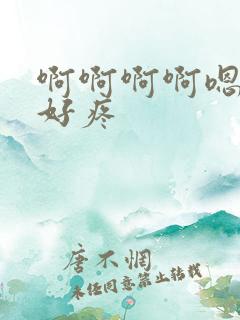 啊啊啊啊嗯
好疼
唐不惘
未经同意禁止转载